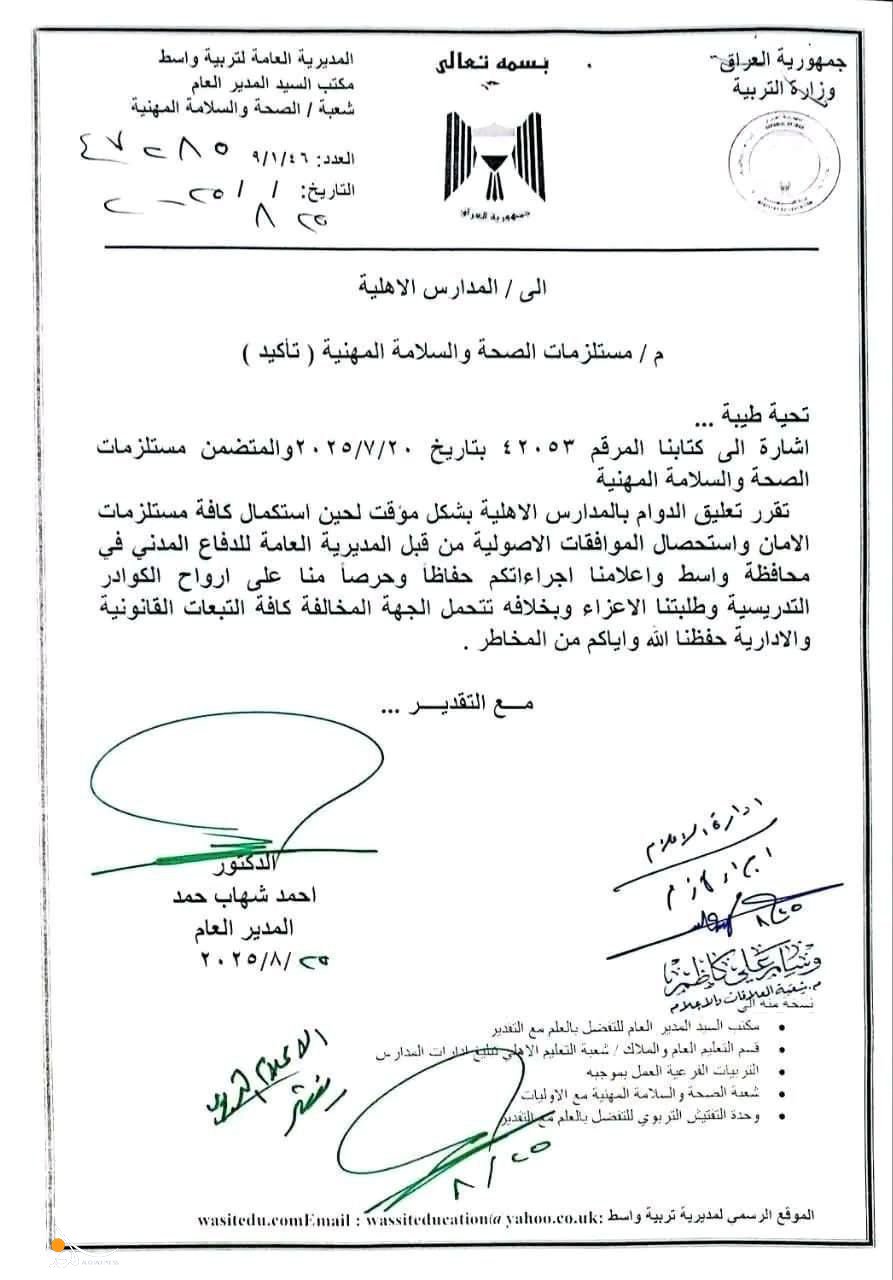 جمهورية العراق
وزارة التربية
بسمه تعالى
جمهورية العراق
المديرية العامة لتربية واسط
مكتب السيد المدير العام
شعبة / الصحة والسلامة المهنية
العدد: ٩/١/٤٦
التاريخ: / /
الى / المدارس الاهلية
م / مستلزمات الصحة والسلامة المهنية ( تأكيد )
تحية طيبة ...
اشارة الى كتابنا المرقم ٤٢٠٥٣ بتاريخ ٢٠٢٥/٧/٢٠والمتضمن مستلزمات
الصحة والسلامة المهنية
تقرر تعليق الدوام بالمدارس الاهلية بشكل مؤقت لحين استكمال كافة مستلزمات
الامان واستحصال الموافقات الاصولية من قبل المديرية العامة للدفاع المدني في
محافظة واسط واعلامنا اجراءاتكم حفاظاً وحرصاً منا على ارواح الكوادر
التدريسية وطلبتنا الاعزاء وبخلافه تتحمل الجهة المخالفة كافة التبعات القانونية
والادارية حفظنا الله واياكم من المخاطر .
مـــع التقديـــــر ...
الدكتور
احمد شهاب حمد
المدير العام
٢٠٢٥/٨/٢٥
وسام علي كاظم
م. شعبة العلاقات والاعلام
نسخة منه الى
• مكتب السيد المدير العام للتفضل بالعلم مع التقدير
• قسم التعليم العام والملاك / شعبة التعليم الاهلي تبليغ ادارات المدارس
• التربيات الفرعية العمل بموجبه
• شعبة الصحة والسلامة المهنية مع الاوليات
• وحدة التفتيش التربوي للتفضل بالعلم مع التقدير
٨/٢٥
الموقع الرسمي لمديرية تربية واسط :wasitedu.comEmail : wassiteducation@yahoo.co.uk